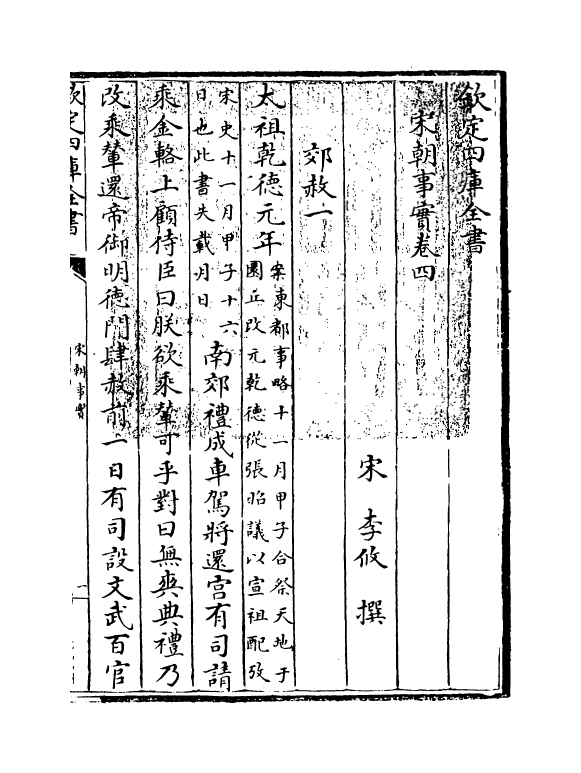 欽定四庫全書
宋朝事實卷四
宋 李攸 撰
郊赦一
太祖乾德元年案東都事略十一月甲子合祭天地于
圜丘改元乾德從張昭議以宣祖配攷
宋史十一月甲子十六
日也此書失載月日南郊禮成車駕將還宮有司請
乘金輅上顧侍臣曰朕欲乘輦可乎對曰無爽典禮乃
改乘輦還帝御明德門肆赦前一日有司設文武百官
欽定四庫全書
宋朝事實
一